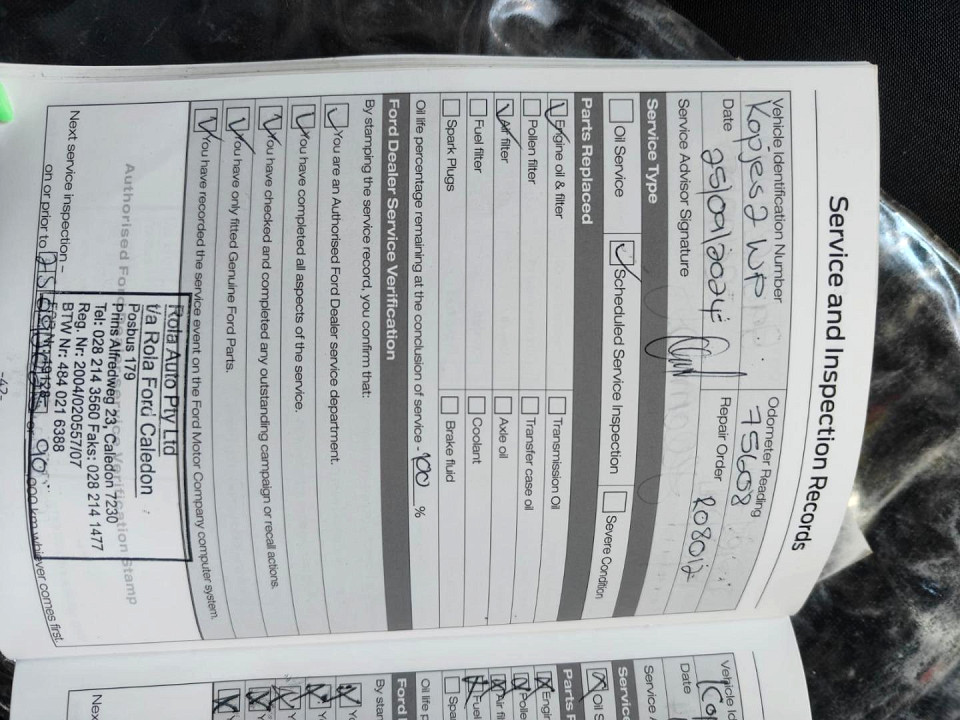 Service and Inspection Records
Vehicle Identification Number
Kopjes2 WP
Odometer Reading
75608
Date 25/09/2024
Repair Order R08012
Service Advisor Signature
Service Type
Oil Service
Scheduled Service Inspection
Severe Condition
Parts Replaced
Engine oil & filter
Transmission Oil
Pollen filter
Transfer case oil
Air filter
Axle oil
Fuel filter
Coolant
Spark Plugs
Brake fluid
Oil life percentage remaining at the conclusion of service - 100 %
Ford Dealer Service Verification
By stamping the service record, you confirm that:
You are an Authorised Ford Dealer service department.
You have completed all aspects of the service.
You have checked and completed any outstanding campaign or recall actions.
You have only fitted Genuine Ford Parts.
You have recorded the service event on the Ford Motor Company computer system.
Rola Auto Pty Ltd
t/a Rola Ford Caledon
Posbus 179
Prins Alfredweg 23, Caledon 7230
Tel: 028 214 3560 Faks: 028 214 1477
Reg. Nr: 2004/020557/07
BTW Nr: 484 021 6388
Authorised Ford Service Verification Stamp
Next service inspection –
on or prior to 90 000 km whichever comes first.
-42-
Vehicle Id
Date
Service A
Service
Oil S
Parts R
Engin
Polle
Air fil
Fuel
Spa
Oil life p
Ford
By st
Y
Y
Y
Y
Y
Nex